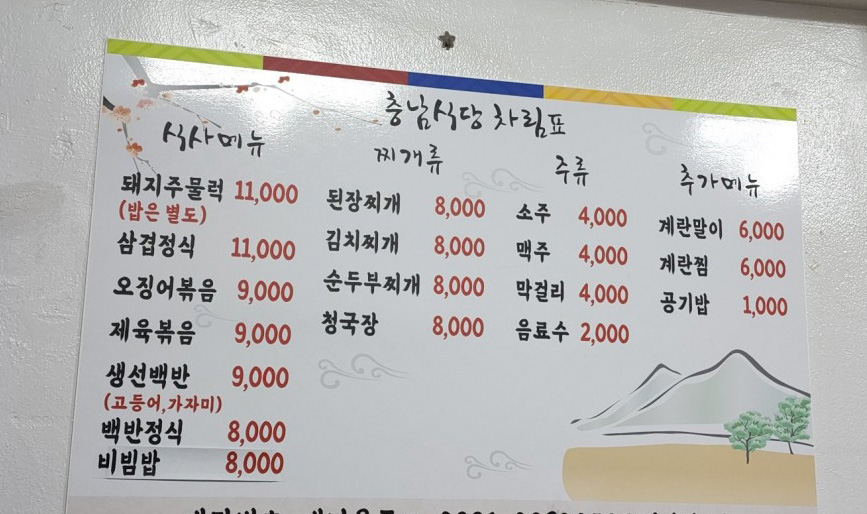 충남식당 차림표
식사메뉴
돼지주물럭 11,000
(밥은 별도)
삼겹정식 11,000
오징어볶음 9,000
제육볶음 9,000
생선백반 9,000
(고등어,가자미)
백반정식 8,000
비빔밥 8,000
찌개류
된장찌개 8,000
김치찌개 8,000
순두부찌개 8,000
청국장 8,000
주류
소주 4,000
맥주 4,000
막걸리 4,000
음료수 2,000
추가메뉴
계란말이 6,000
계란찜 6,000
공기밥 1,000